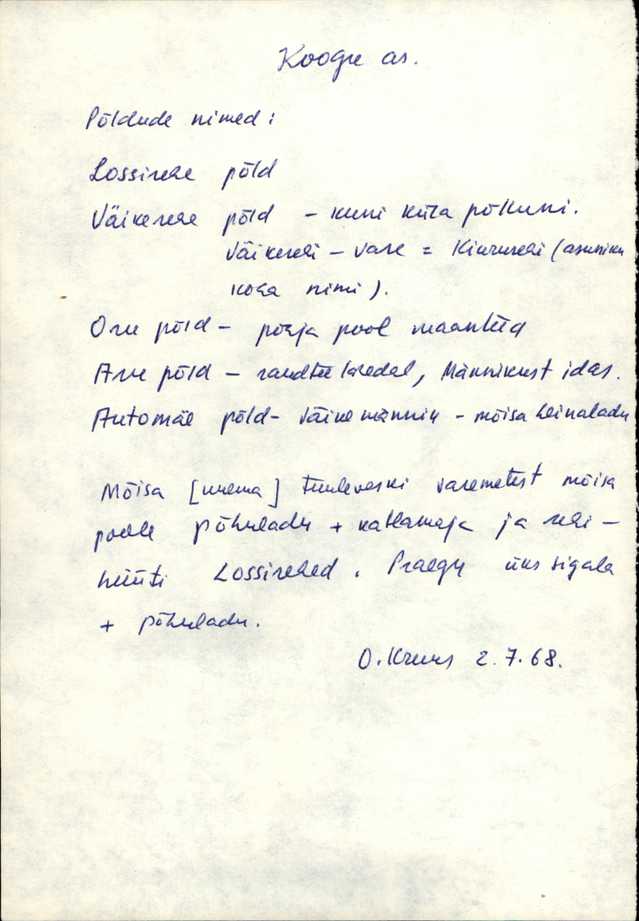 Koogu as.
Põldude nimed:
Lossirehe põld
Väikerehe põld – kuni küla põlluni.
Väikerehi – vare = Kiururehi (asuniku
koha nimi).
Oru põld – põhja pool maanteed
Aru põld – raudtee laredal, Männikust idas.
Automäe põld – Väike männik – mõisa heinaladu
Mõisa [uuema] tuuleveski varemetest mõisa
poole põhuladu + katlamaja ja rehi –
hüüti Lossirehed. Praegu üks sigala
+ põhuladu.
O. Kruus 2.7.68.